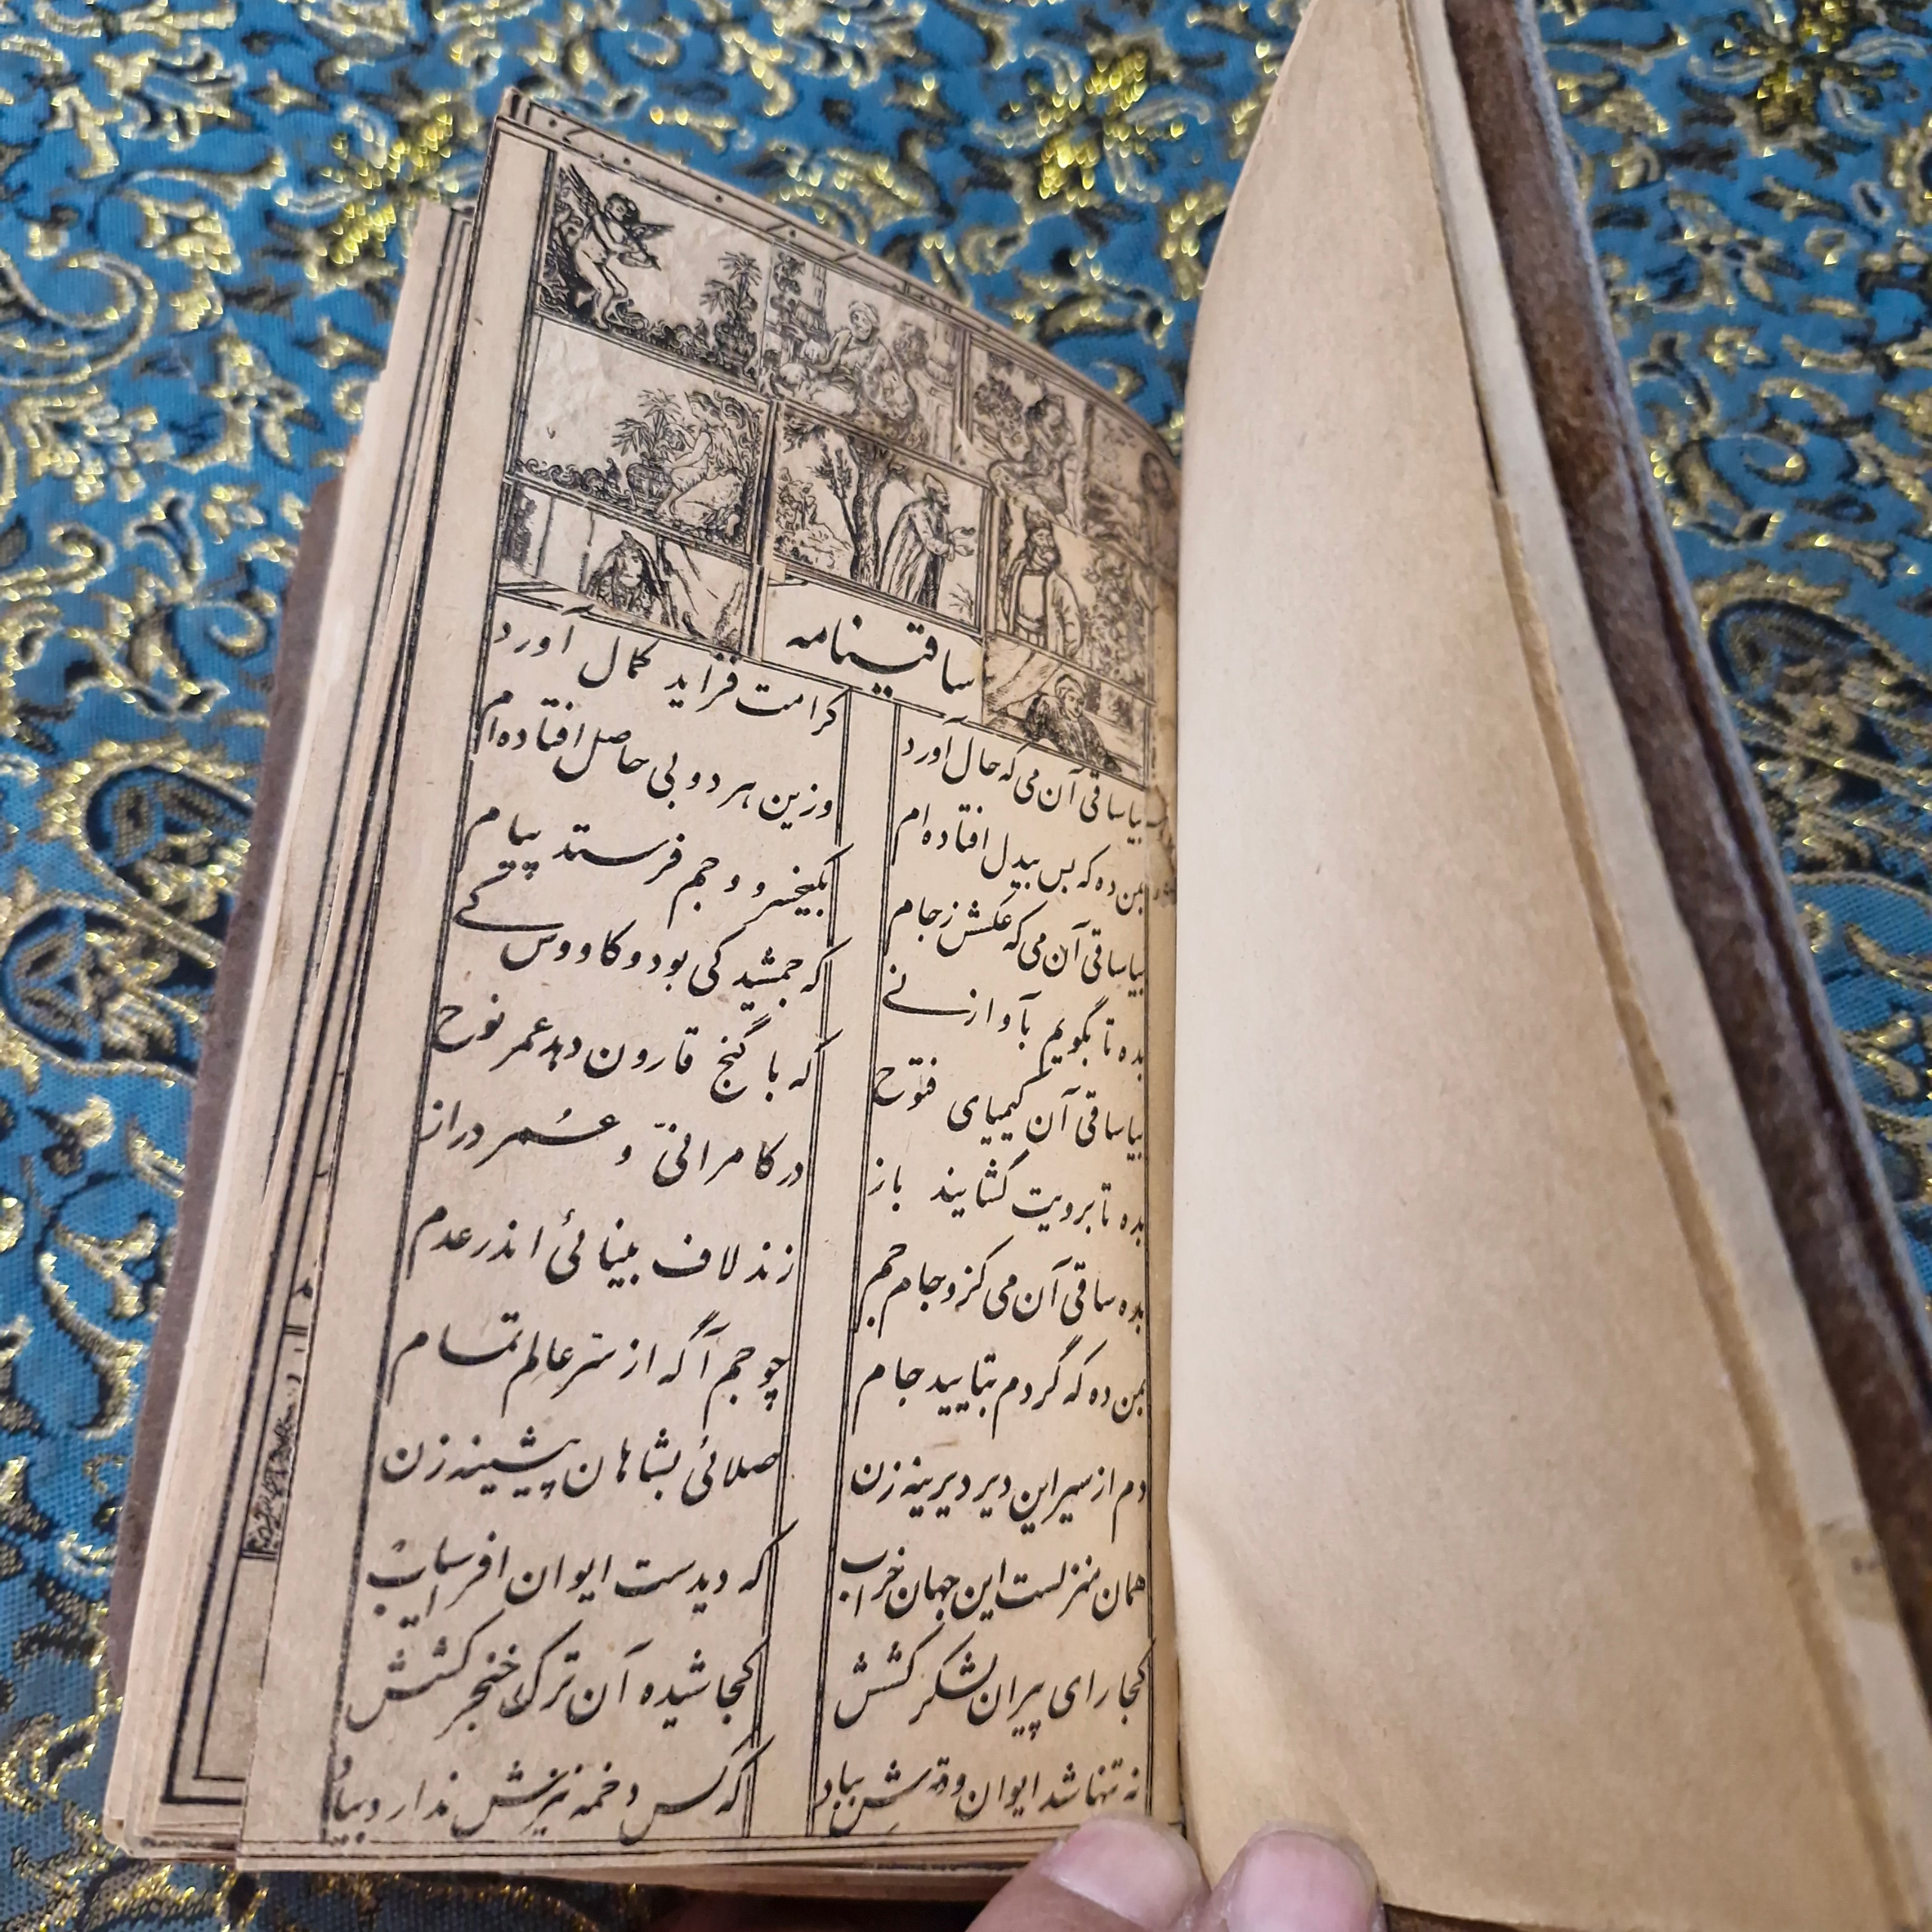 ساقینامه
بیا ساقی آن می که حال آورد
کرامت فزاید کمال آورد
بمن ده که بس بیدل افتاده‌ام
وزین هر دو بی حاصل افتاده‌ام
بیا ساقی آن می که عکسش ز جام
بکیخسرو و جم فرستد پیام
بده تا بگویم بآواز نے
که جمشید کی بود و کاووس کے
بیا ساقی آن کیمیای فتوح
که با گنج قارون دهد عمر نوح
بده تا برویت گشایند باز
در کامرانیّ و عُمر دراز
بده ساقی آن می کزو جام جم
زند لاف بینائی اندر عدم
بمن ده که گردم بتایید جام
چو جم آگه از سّر عالم تمام
دم از سیر این دیر دیرینه زن
صلائی بشاهان پیشینه زن
همان منزلست این جهان خراب
که دیدست ایوان افراسیاب
کجا رای پیران لشکر کشش
کجا شیده آن ترک خنجر کشش
نه تنها شد ایوان و قصرش بباد
که کس دخمه نیزش ندارد بیاد